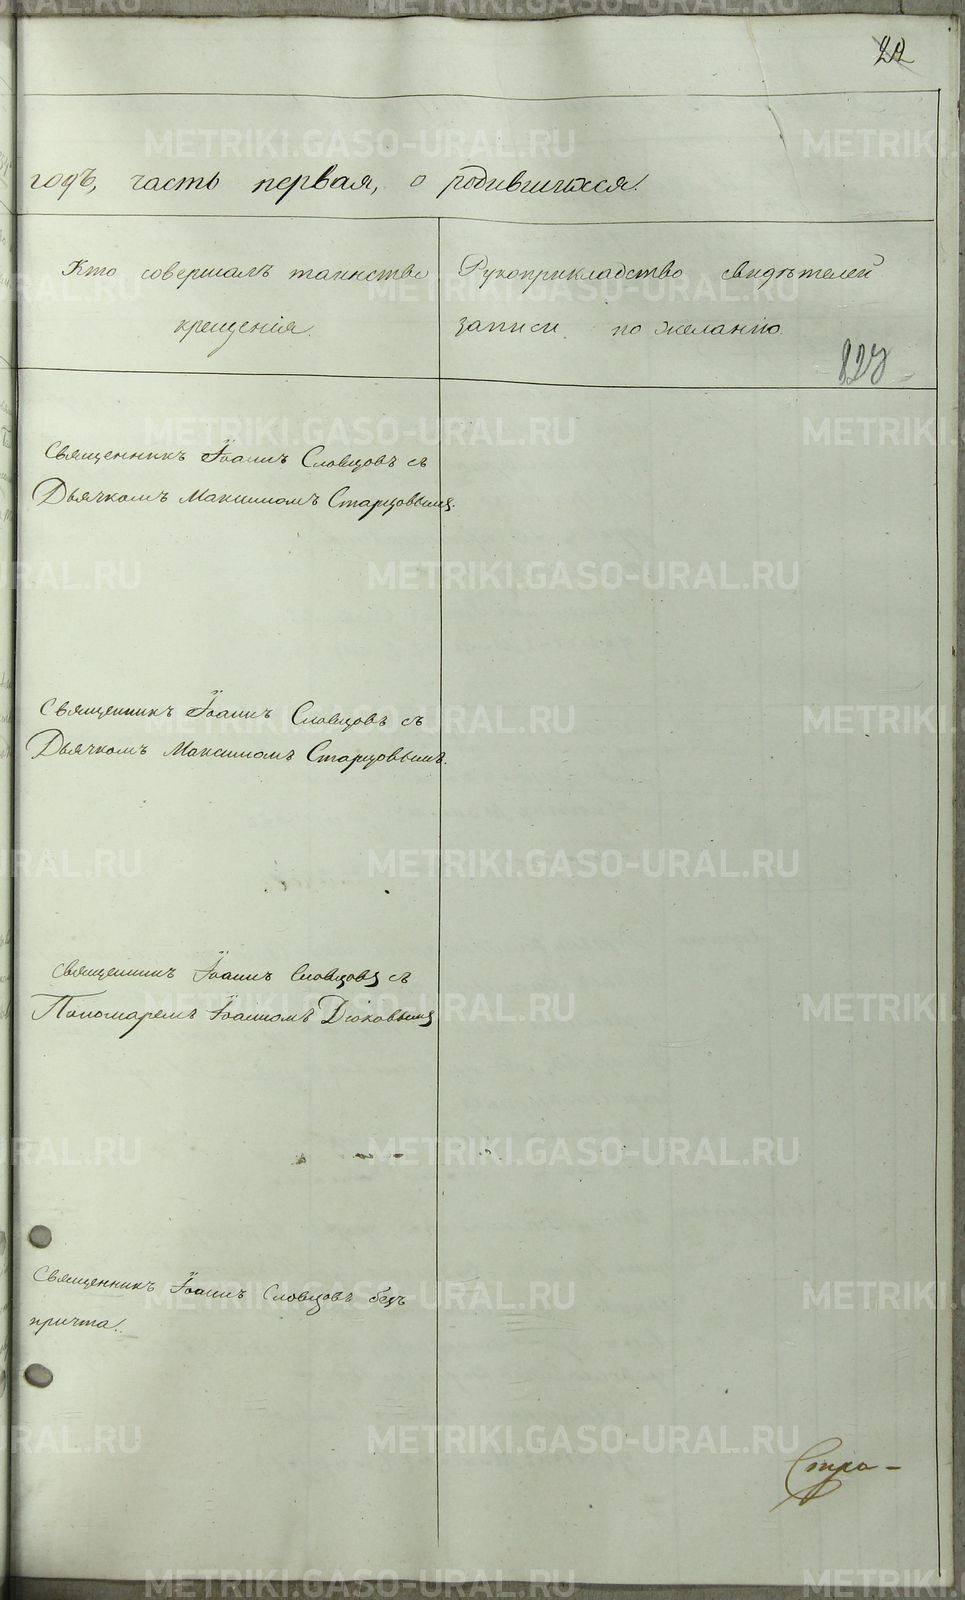 22
годъ, часть первая, о родившихся.
Кто совершалъ таинство
крещенія.
Рукоприкладство свидѣтелей
записи по желанію.
827
Священникъ Іоаннъ Словцовъ съ
Дьячкомъ Максимомъ Старцовымъ.
Священникъ Іоаннъ Словцовъ съ
Дьячкомъ Максимомъ Старцовымъ.
Священникъ Іоаннъ Словцовъ съ
Пономаремъ Іоанномъ Дюковымъ
Священникъ Іоаннъ Словцовъ безъ
причта.
METRIKI.GASO-URAL.RU